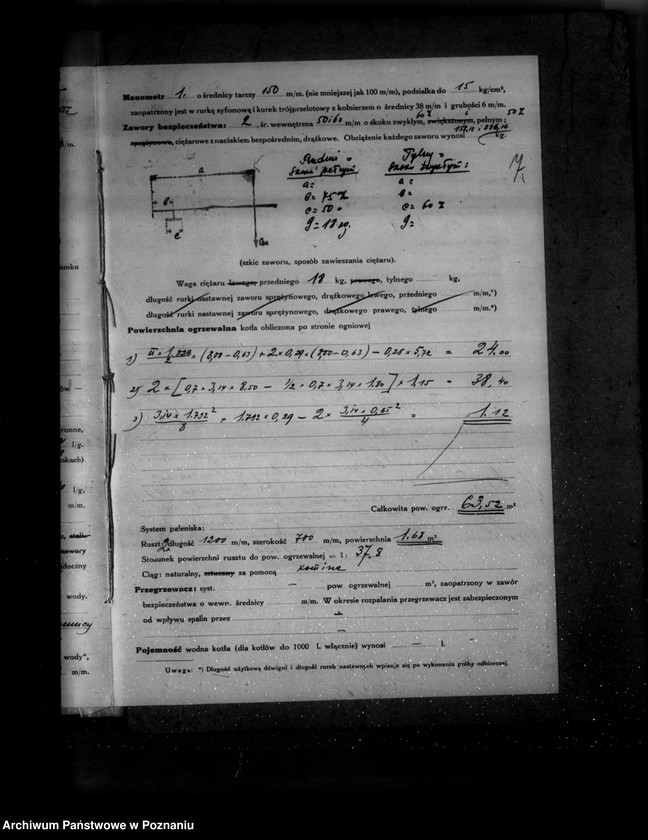 Manometr 1. o średnicy tarczy 150 m/m. (nie mniejszej jak 100 m/m), podziałka do 15 kg/cm²,
zaopatrzony jest w rurkę syfonową i kurek trójprzelotowy z kołnierzem o średnicy 38 m/m i grubości 6 m/m.
Zawory bezpieczeństwa: 2, śr. wewnętrzna 50 i 60 m/m o skoku zwykłym, zwiększonym, pełnym;
sprężynowe, ciężarowe z naciskiem bezpośrednim, drążkowe. Obciążenie każdego zaworu wynosi kg.
a:
b = 75
c = 50
g = 18 kg.
a:
b =
c = 60
g =
a
b
c
(szkic zaworu, sposób zawieszania ciężaru).
Waga ciężaru lewego, przedniego 18 kg, prawego, tylnego kg,
długość rurki nastawnej zaworu sprężynowego, drążkowego lewego, przedniego m/m,*)
długość rurki nastawnej zaworu sprężynowego, drążkowego prawego, tylnego m/m.*)
Powierzchnia ogrzewalna kotła obliczona po stronie ogniowej
= 24.00
2) 2 × [0,7 × 3,14 × 8,50 − 1/2 × 0,7 × 3,14 × 1,80] × 1,15 = 38,40
3) 3,14 × 1.732² / 8 + 1.732 × 0,29 − 2 × 3,14 × 0,65² / 4 = 1.12
Całkowita pow. ogrz. 63,52 m²
System paleniska:
Ruszt, 2 długość 1200 m/m, szerokość 700 m/m, powierzchnia 1.68 m²
Stosunek powierzchni rusztu do pow. ogrzewalnej = 1: 37,8
Ciąg: naturalny, sztuczny za pomocą komina
Przegrzewacz: syst. — pow. ogrzewalnej m², zaopatrzony w zawór
bezpieczeństwa o wewn. średnicy m/m. W okresie rozpalania przegrzewacz jest zabezpieczony
od wpływu spalin przez
Pojemność wodna kotła (dla kotłów do 1000 l. włącznie) wynosi — l.
Uwaga: *) Długość użytkową dźwigni i długość rurek nastawnych wpisuje się po wykonaniu próby odbiorczej.
Archiwum Państwowe w Poznaniu